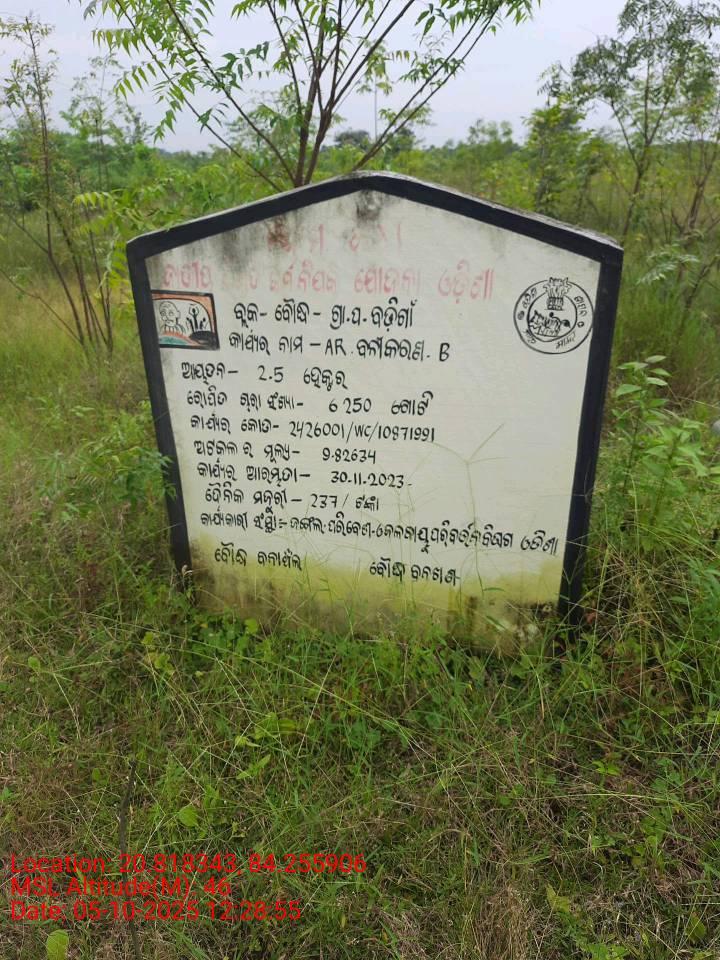 ଜାତୀୟ ଯୋଜନା ଓଡ଼ିଶା
ବ୍ଲକ - ବୌଦ୍ଧ - ଗ୍ରା.ପ. ବଡ଼ିଗାଁ
କାର୍ଯ୍ୟର ନାମ - AR. ବନୀକରଣ. B
ଆୟତନ - 2.5 ହେକ୍ଟର
ରୋପିତ ଚାରା ସଂଖ୍ୟା - 6250 ଗୋଟି
କାର୍ଯ୍ୟର କୋଡ - 2426001/WC/10871991
ଅଟକଳ ର ମୂଲ୍ୟ - 9.82634
କାର୍ଯ୍ୟର ଆରମ୍ଭତା - 30.11.2023.
ଦୈନିକ ମଜୁରୀ - 237/ ଟଙ୍କା
କାର୍ଯ୍ୟକାରୀ ସଂସ୍ଥା :- ଜଙ୍ଗଲ ପରିବେଶ ଓ ଜଳବାୟୁ ପରିବର୍ତ୍ତନ ବିଭାଗ ଓଡିଶା
ବୌଦ୍ଧ ବନାଞ୍ଚଳ ବୌଦ୍ଧ ବନଖଣ୍ଡ
Location: 20.818343, 84.255906
MSL Altitude(M): 46
Date: 05-10-2025 12:28:55